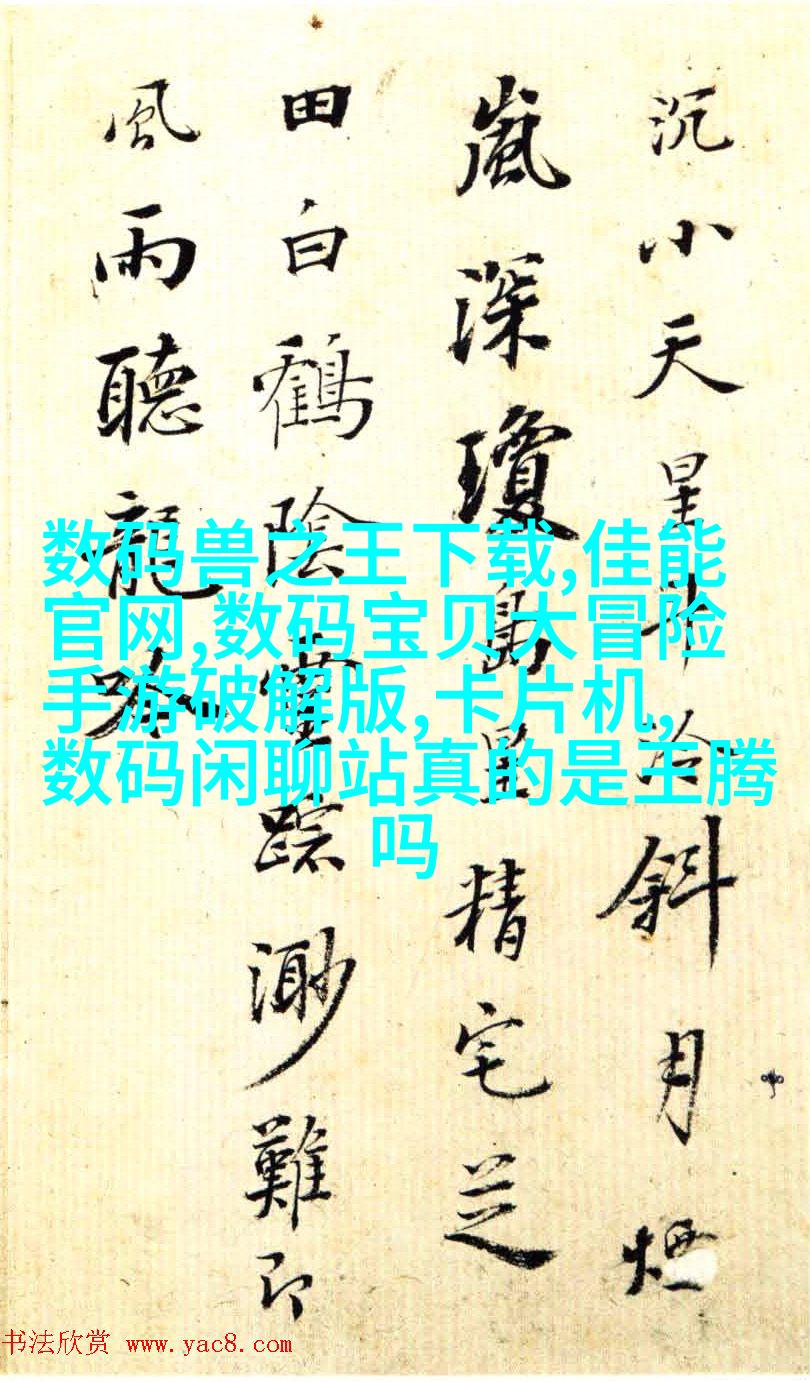 沉小天星斗冷斜月煙
嵐深瓊島星精宅芝
田白鶴陰靈蹤渺難即
風雨聽龍吟
数码兽之王下载,佳能
官网,数码宝贝大冒险
手游破解版,卡片机,
数码闲聊站真的是王腾
吗
书法欣赏 www.yac8.com